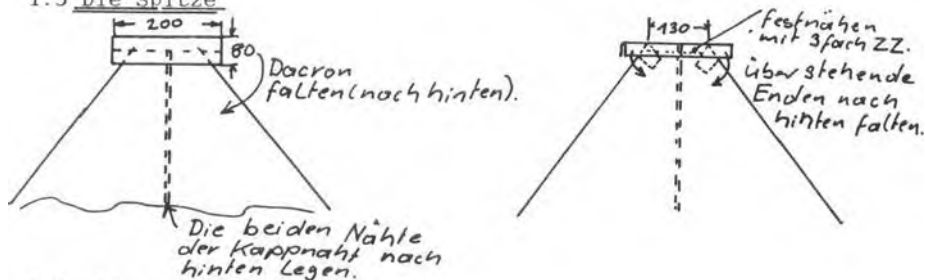 1.3 Die Spitze
200
80
Dacron
falten (nach hinten).
Die beiden Nähte
der Kappnaht nach
hinten Legen.
130
festnähen
mit 3fach ZZ.
überstehende
Enden nach
hinten falten.